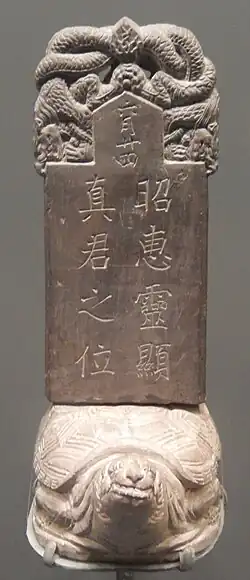 昭惠靈顯
真君之位